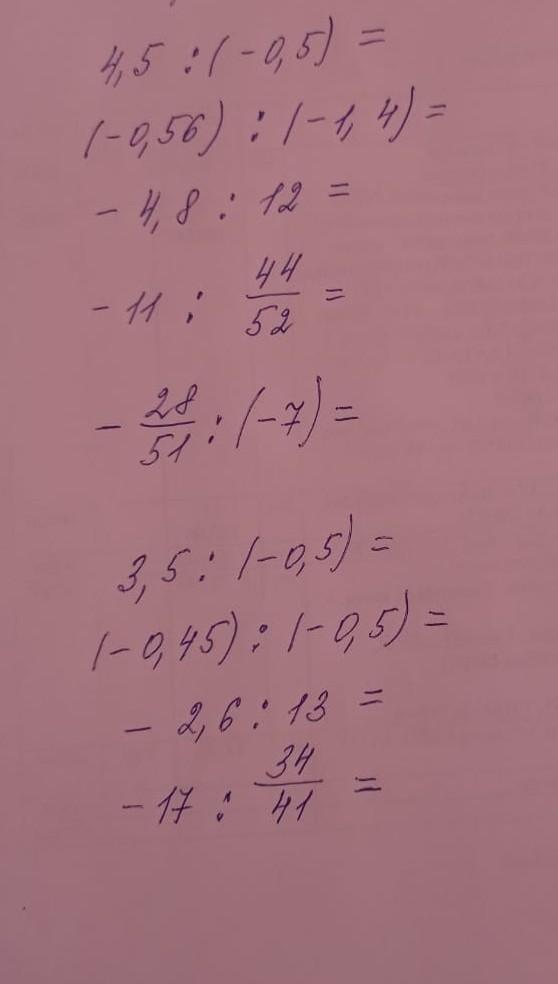 4,5 : (-0,5) =
(-0,56) : (-1,4) =
- 4,8 : 12 =
- 11 : 44/52 =
- 28/51 : (-7) =
3,5 : (-0,5) =
(-0,45) : (-0,5) =
- 2,6 : 13 =
- 17 : 34/41 =